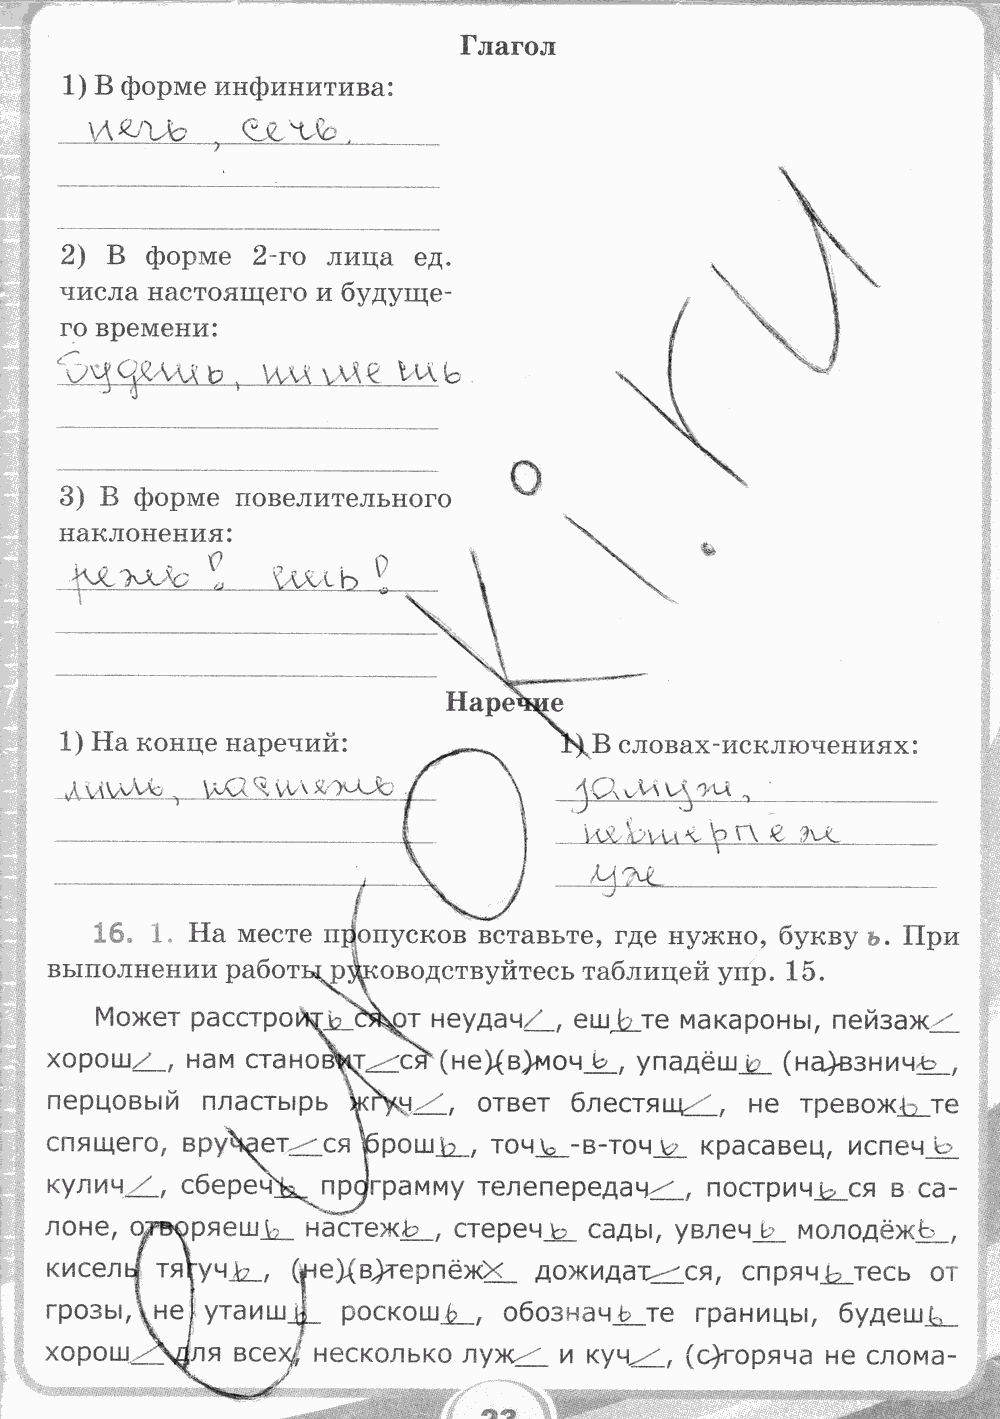 Глагол
1) В форме инфинитива:
печь, сечь.
2) В форме 2-го лица ед.
числа настоящего и будуще-
го времени:
будешь, пишешь
3) В форме повелительного
наклонения:
режь! ешь!
Наречие
1) На конце наречий:
лишь, настежь
1) В словах-исключениях:
замуж,
невтерпеж
уж
16. 1. На месте пропусков вставьте, где нужно, букву ь. При
выполнении работы руководствуйтесь таблицей упр. 15.
Может расстроить_ся от неудач_, ешь_те макароны, пейзаж_
хорош_, нам становит_ся (не)(в)мочь_, упадёшь_ (на)взничь_,
перцовый пластырь жгуч_, ответ блестящ_, не тревожь_те
спящего, вручает_ся брошь_, точь_-в-точь_ красавец, испечь_
кулич_, сберечь_ программу телепередач_, постричь_ся в са-
лоне, отворяешь_ настежь_, стеречь_ сады, увлечь_ молодёжь_,
кисель тягучь_, (не)(в)терпёж_ дожидат_ся, спрячь_тесь от
грозы, не утаишь_ роскошь_, обозначь_те границы, будешь_
хорош_ для всех, несколько луж_ и куч_, (с)горяча не слома-
23
ГУРОКi.ru